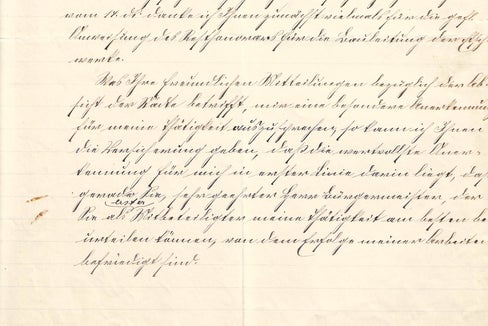 vom 18. ds. danke ich Ihnen zunächst vielmals für die gefl.
Anweisung des Resthonorars für die Bauleitung der
werke.
Was Ihre freundlichen Mitteilungen bezüglich der Ab-
sicht der Räte betrifft, mir eine besondere Anerkennung
für meine Thätigkeit auszusprechen, so kann ich Ihnen
die Versicherung geben, daß die wertvollste Aner-
kennung für mich in erster Linie darin liegt, daß
gerade Sie, sehr geehrter Herr Bürgermeister, der
Sie als Mitbeteiligter meine Thätigkeit am besten be-
urteilen können, von dem Erfolge meiner Arbeiten
befriedigt sind.